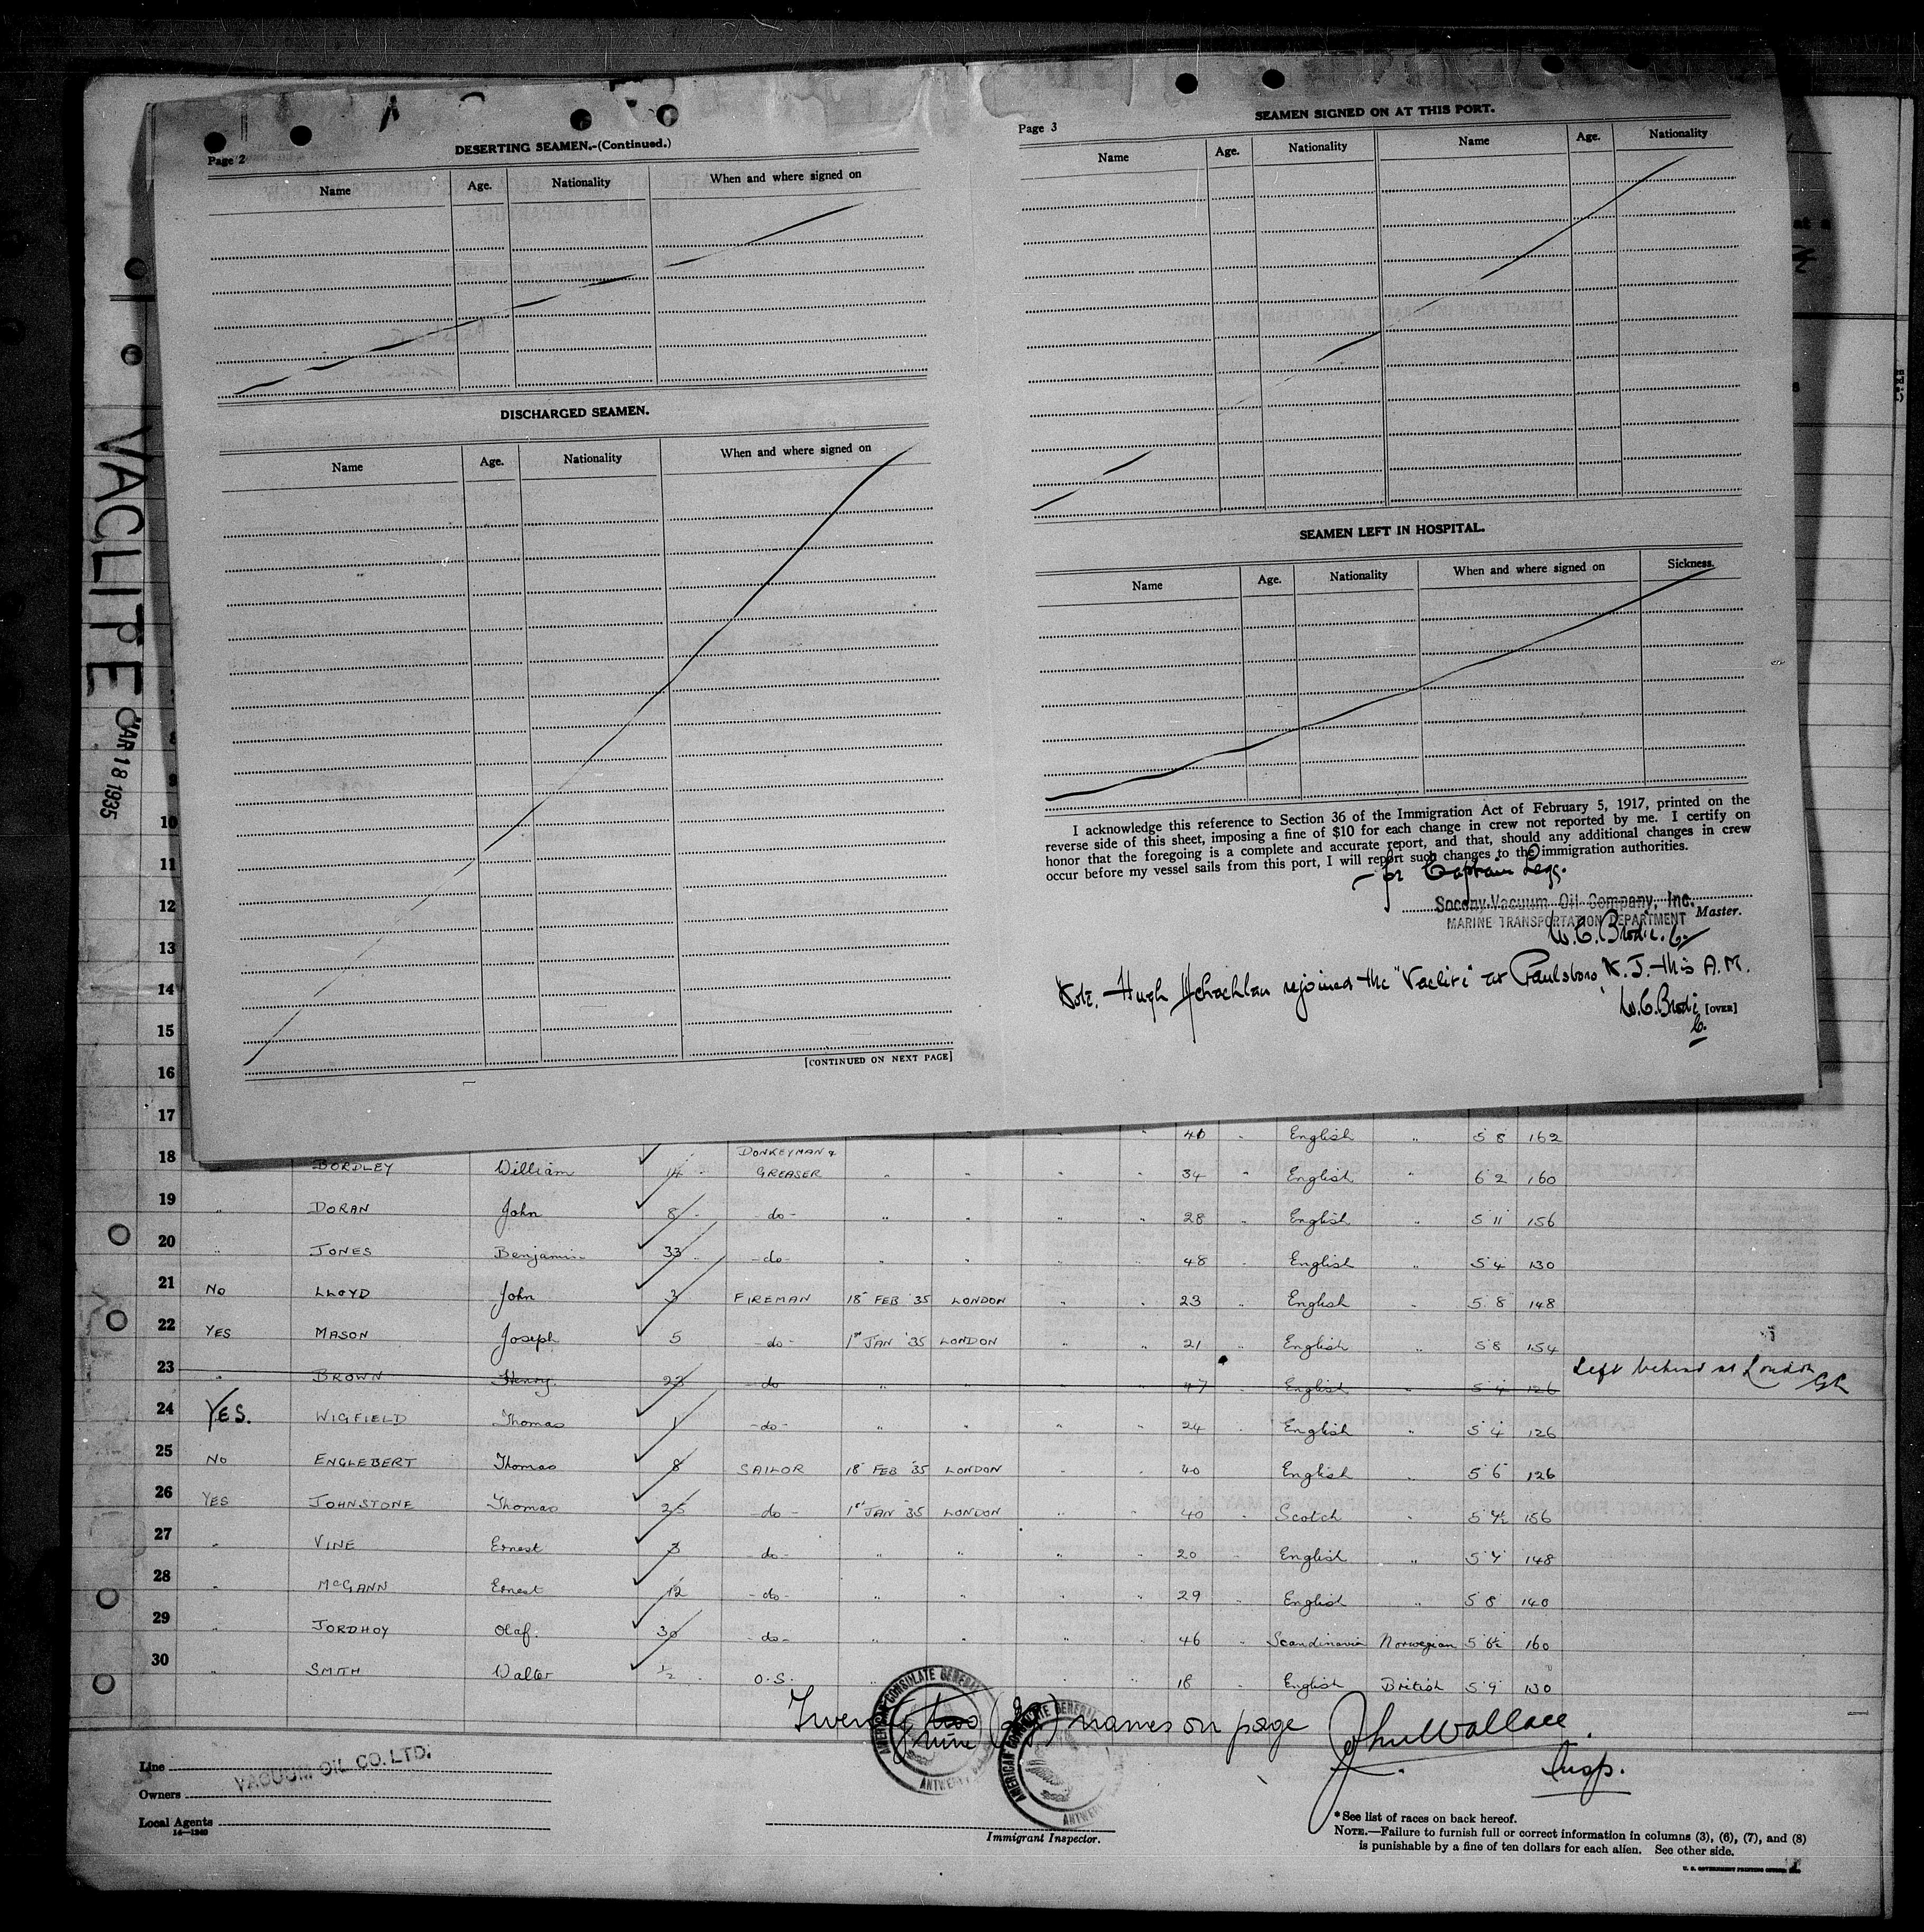 VACLITE
MAR 18 1935
Page 2
DESERTING SEAMEN.-(Continued.)
Name Age. Nationality When and where signed on
DISCHARGED SEAMEN.
Name Age. Nationality When and where signed on
[CONTINUED ON NEXT PAGE]
Page 3
SEAMEN SIGNED ON AT THIS PORT.
Name Age. Nationality Name Age. Nationality
SEAMEN LEFT IN HOSPITAL.
Name Age. Nationality When and where signed on Sickness.
I acknowledge this reference to Section 36 of the Immigration Act of February 5, 1917, printed on the
reverse side of this sheet, imposing a fine of $10 for each change in crew not reported by me. I certify on
honor that the foregoing is a complete and accurate report, and that, should any additional changes in crew
occur before my vessel sails from this port, I will report such changes to the immigration authorities.
for Captain Legg.
Socony-Vacuum Oil Company, Inc.
MARINE TRANSPORTATION DEPARTMENT Master.
W. C. Brodie
Note. Hugh McLachlan rejoined the "Vaclite" at Paulsboro, N.J. this A.M.
W.C. Brodie [OVER]
10
11
12
13
14
15
16
17 40 " English " 5 8 162
18 BORDLEY William 14 DONKEYMAN & GREASER " " " 34 English " 6 2 160
19 " DORAN John 8 -do- " " " " 28 " English " 5 11 156
20 " JONES Benjamin 33 -do- " " " " 48 " English " 5 4 130
21 No LLOYD John 3 FIREMAN 18 FEB '35 LONDON " " 23 " English " 5 8 148
22 YES MASON Joseph 5 -do- 1st JAN '35 LONDON " " 21 " English " 5 8 154
23 " BROWN Henry 23 -do- " " 47 " English " 5 4 126 Left behind at London
24 YES. WIGFIELD Thomas 1 -do- " " " " 24 " English " 5 4 126
25 No ENGLEBERT Thomas 8 SAILOR 18 FEB '35 LONDON " " 40 English " 5 6 126
26 YES JOHNSTONE Thomas 25 -do- 1st JAN '35 LONDON " " 40 " Scotch " 5 4½ 156
27 " VINE Ernest 3 -do- " " " " 20 " English " 5 7 148
28 " McGANN Ernest 12 -do- " " " " 29 " English " 5 8 140
29 " JORDHOY Olaf. 30 -do- " " " " 46 " Scandinavia Norwegian 5 6½ 160
30 " SMITH Walter ½ O.S. " " " 18 " English British 5 9 130
Twenty two nine (29) names on page John Wallace
Insp.
AMERICAN CONSULATE GENERAL ANTWERP
AMERICAN CONSULATE GENERAL ANTWERP
Line
Owners VACUUM OIL CO. LTD.
Local Agents
14—1240
Immigrant Inspector.
*See list of races on back hereof.
NOTE.—Failure to furnish full or correct information in columns (3), (6), (7), and (8)
is punishable by a fine of ten dollars for each alien. See other side.
U. S. GOVERNMENT PRINTING OFFICE